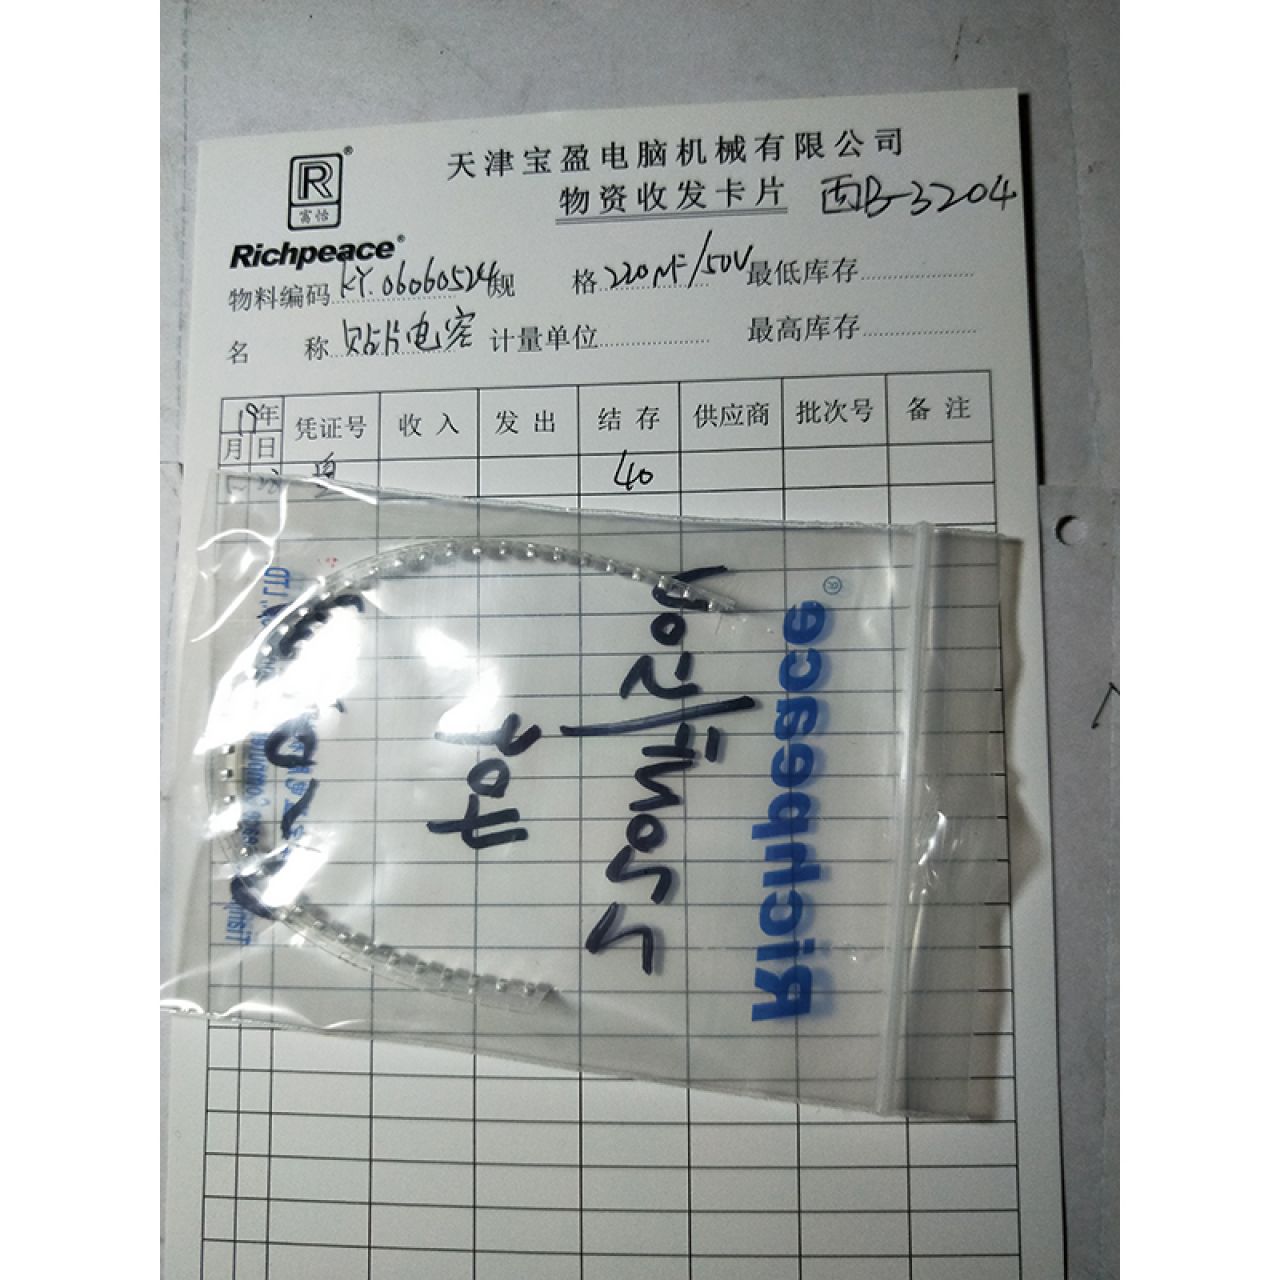 R®
富怡
Richpeace®
天津宝盈电脑机械有限公司
物资收发卡片 西B-3204
物料编码 KY.06060524 规 格 220μF/50V 最低库存
名 称 贴片电容 计量单位 最高库存
19年 凭证号 收入 发出 结存 供应商 批次号 备注
月 日
40
Richpeace®
220μF/50V
40